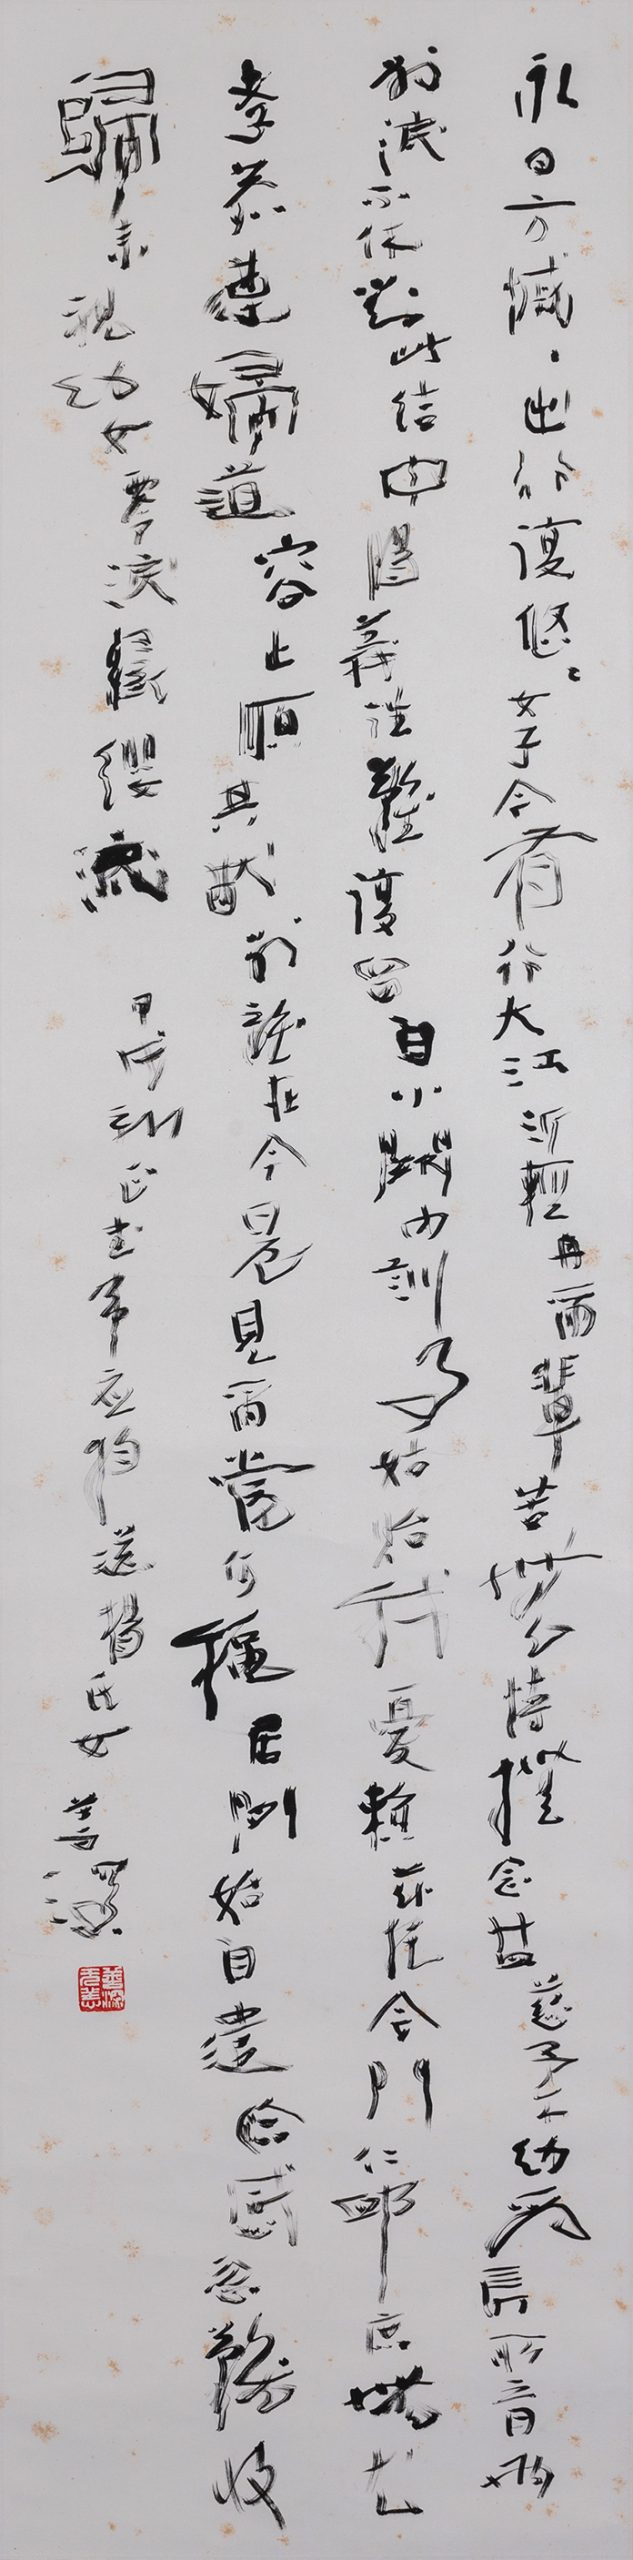 永日方慽〻出行復悠〻女子今有行大江泝輕舟爾輩苦無恃撫念益慈柔幼為長所育兩
別淚不休對此結中腸義往難復留自小闕內訓事姑貽我憂賴茲託令門仁卹庶無尤
孝恭遵婦道容止順其猷別離在今晨見爾當何穐居閒始自遣臨感忽難收
歸來視幼女零淚緣纓流 甲戌 書韋应物送楊氏女 善深
善深无恙